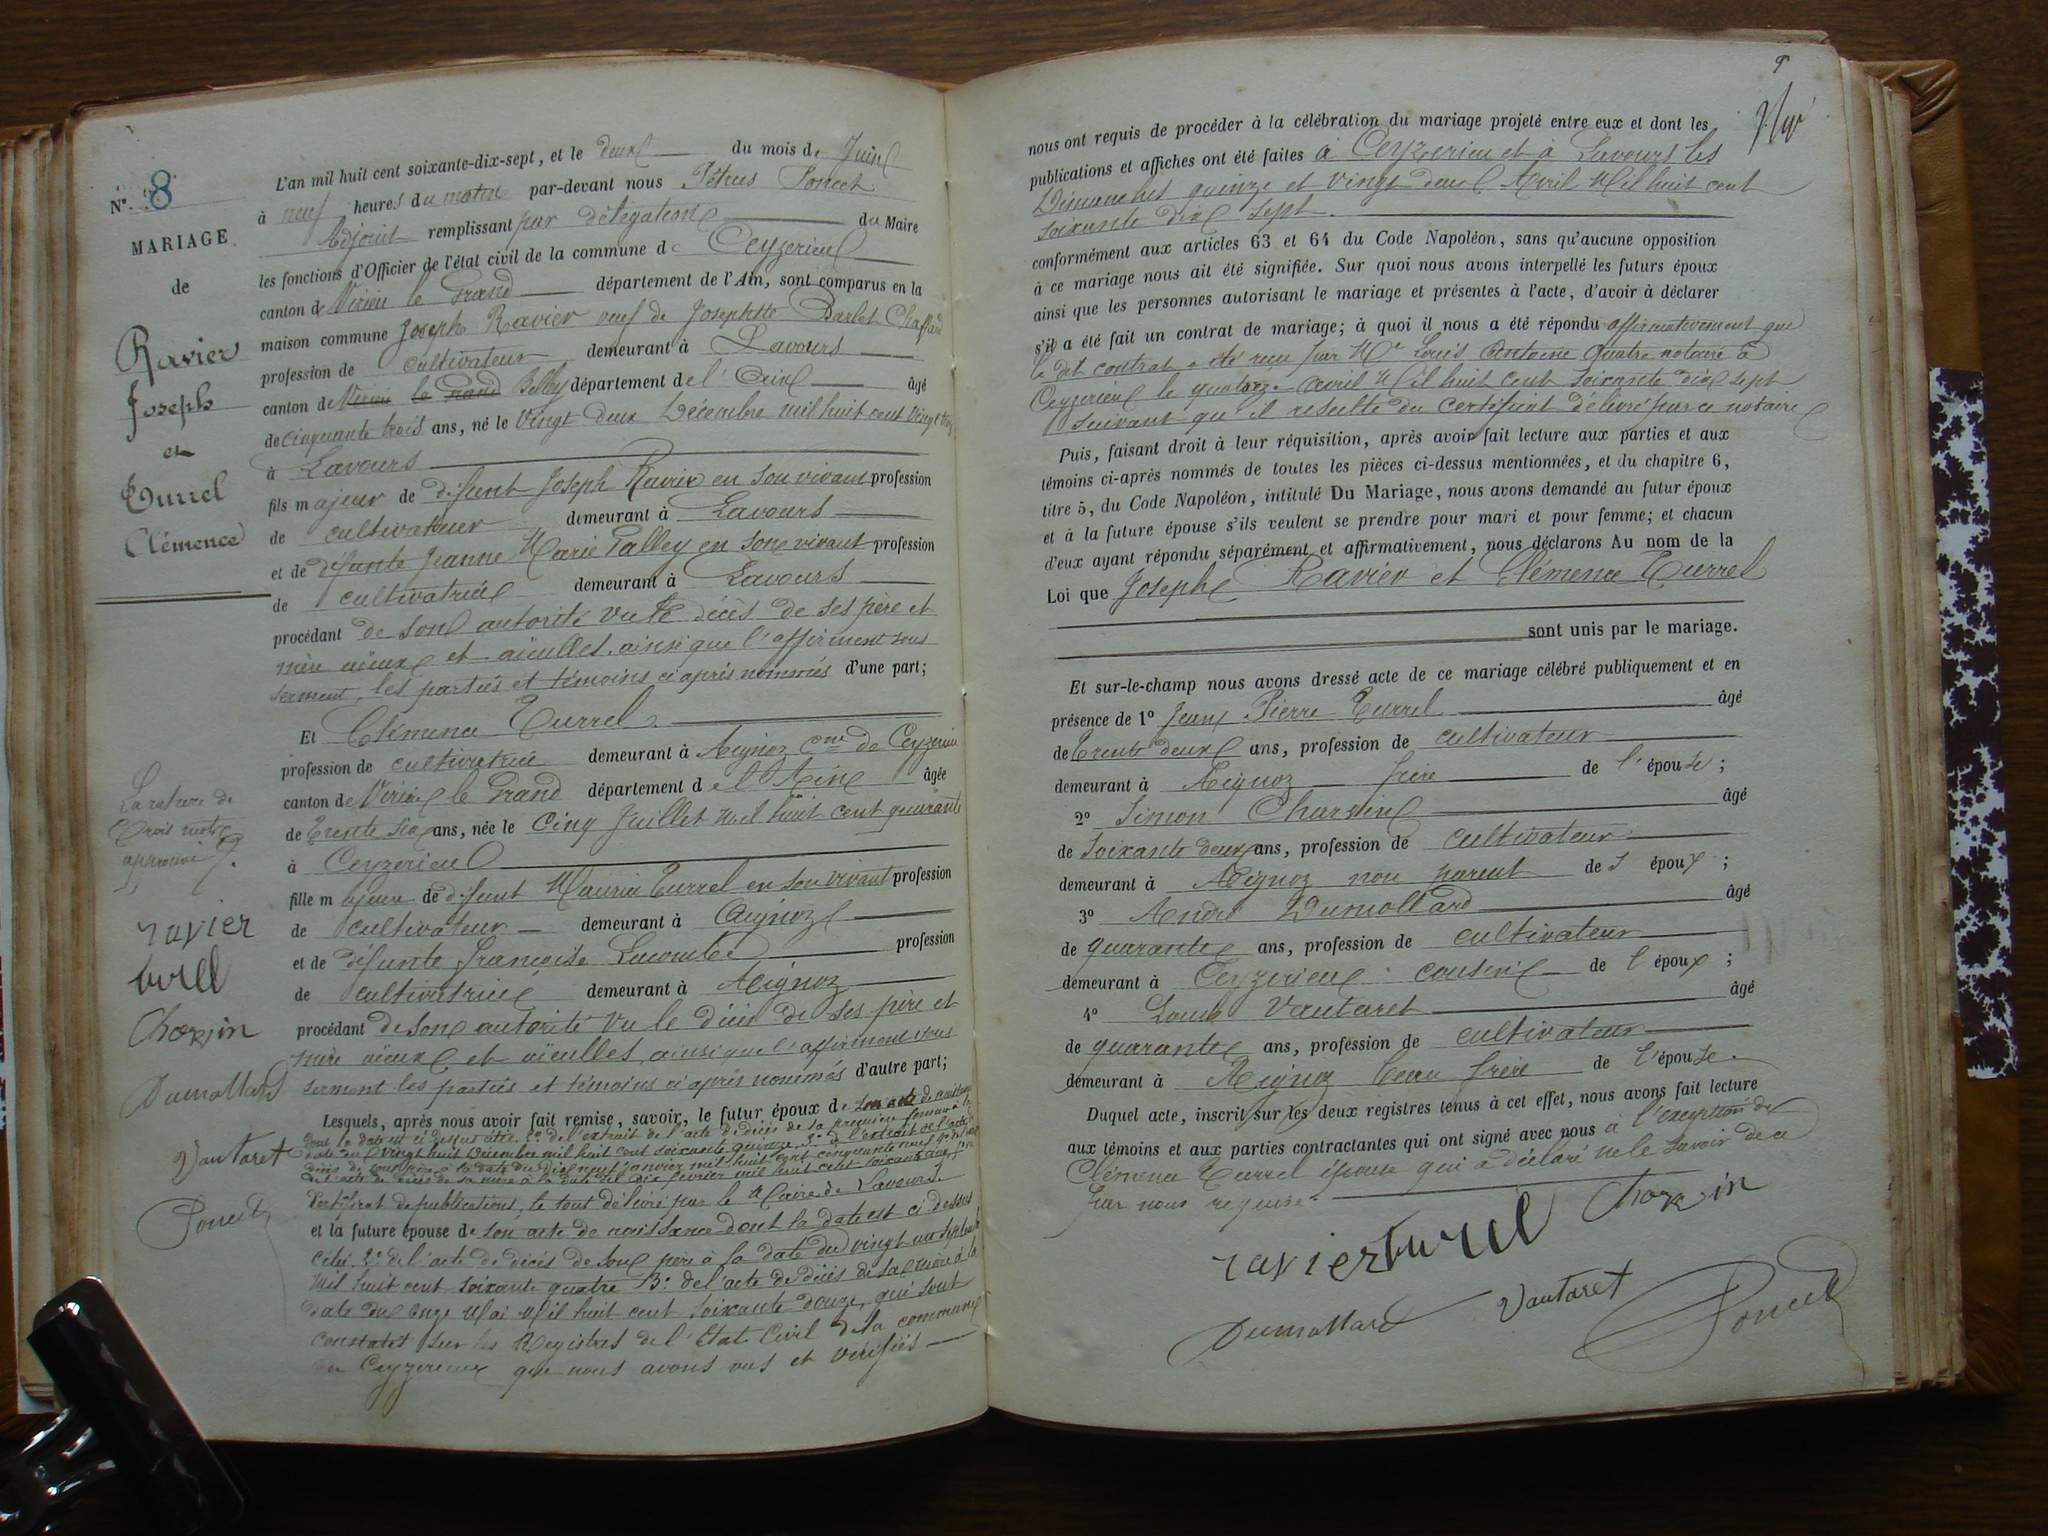 N° 8
MARIAGE
de
Ravier
Joseph
et
Turrel
Clémence
La rature de
trois mots
approuvé
ravier
turel
Charvin
Dumollard
Vautaret
Poncet
L'an mil huit cent soixante-dix-sept, et le deux du mois de Juin
à neuf heures du matin par-devant nous Pétrus Poncet
Adjoint remplissant par délégation du Maire
les fonctions d'Officier de l'état civil de la commune de Ceyzerieu
canton de Virieu le Grand département de l'Ain, sont comparus en la
maison commune Joseph Ravier veuf de Josephte Barlet Chaffard
profession de cultivateur demeurant à Lavours
canton de Virieu le Grand Belley département de l'Ain âgé
de cinquante trois ans, né le vingt deux Décembre mil huit cent vingt trois
à Lavours
fils majeur de défunt Joseph Ravier en son vivant profession
de cultivateur demeurant à Lavours
et de défunte Jeanne Marie Talley en son vivant profession
de cultivatrice demeurant à Lavours
procédant de son autorité vu le décès de ses père et
mère aïeux et aïeulles, ainsi que l'affirment sous
serment, les parties et témoins ci après nommés d'une part;
Et Clémence Turrel
profession de cultivatrice demeurant à Aignoz cne de Ceyzerieu
canton de Virieu le Grand département de l'Ain âgée
de trente six ans, née le cinq Juillet mil huit cent quarante
à Ceyzerieu
fille majeure de défunt Maurice Turrel en son vivant profession
de cultivateur demeurant à Aignoz
et de défunte françoise Lacombe profession
de cultivatrice demeurant à Aignoz
procédant de son autorité vu le décès de ses père et
mère aïeux et aïeulles, ainsi que l'affirment sous
serment les parties et témoins ci après nommés d'autre part;
Lesquels, après nous avoir fait remise, savoir, le futur époux de son acte de naissance
dont la date est ci dessus citée 2° de l'extrait de l'acte de décès de sa première femme à la
date du vingt huit Décembre mil huit cent soixante quinze, 3° de l'extrait de l'acte
décès de son père à la date du dix neuf janvier mil huit cent cinquante neuf
de l'acte de décès de sa mère à la date du dix février mil huit cent soixante
Certificat de publications, le tout délivré par le Maire de Lavours.
et la future épouse de son acte de naissance dont la date est ci dessus
citée 2° de l'acte de décès de son père à la date du vingt un septembre
mil huit cent soixante quatre 3° de l'acte de décès de sa mère à la
date du onze Mai Mil huit cent soixante douze, qui sont
constatés sur les Registres de l'Etat Civil de la commune
de Ceyzerieu que nous avons vus et vérifiés
9
nous ont requis de procéder à la célébration du mariage projeté entre eux et dont les
publications et affiches ont été faites à Ceyzerieu et à Lavours les
Dimanches quinze et vingt deux Avril Mil huit cent
soixante dix sept.
conformément aux articles 63 et 64 du Code Napoléon, sans qu'aucune opposition
à ce mariage nous ait été signifiée. Sur quoi nous avons interpellé les futurs époux
ainsi que les personnes autorisant le mariage et présentes à l'acte, d'avoir à déclarer
s'il a été fait un contrat de mariage; à quoi il nous a été répondu affirmativement que
le dit contrat a été reçu par Me Louis Antoine Quatre notaire à
Ceyzerieu le quatorze avril Mil huit cent soixante dix sept
suivant qu'il résulte du certificat délivré par ce notaire
Puis, faisant droit à leur réquisition, après avoir fait lecture aux parties et aux
témoins ci-après nommés de toutes les pièces ci-dessus mentionnées, et du chapitre 6,
titre 5, du Code Napoléon, intitulé Du Mariage, nous avons demandé au futur époux
et à la future épouse s'ils veulent se prendre pour mari et pour femme; et chacun
d'eux ayant répondu séparément et affirmativement, nous déclarons Au nom de la
Loi que Joseph Ravier et Clémence Turrel
sont unis par le mariage.
Et sur-le-champ nous avons dressé acte de ce mariage célébré publiquement et en
présence de 1° Jean Pierre Turrel âgé
de trente deux ans, profession de cultivateur
demeurant à Aignoz frère de l'épouse;
2° Simon Charvin âgé
de soixante deux ans, profession de cultivateur
demeurant à Aignoz non parent des époux;
3° André Dumollard âgé
de quarante ans, profession de cultivateur
demeurant à Ceyzerieu cousin de l'époux;
4° Louis Vautaret âgé
de quarante ans, profession de cultivateur
demeurant à Aignoz beau frère de l'épouse.
Duquel acte, inscrit sur les deux registres tenus à cet effet, nous avons fait lecture
aux témoins et aux parties contractantes qui ont signé avec nous à l'exception de
Clémence Turrel épouse qui a déclaré ne le savoir de ce
par nous requise
ravier turel Charvin
Dumollard Vautaret Poncet